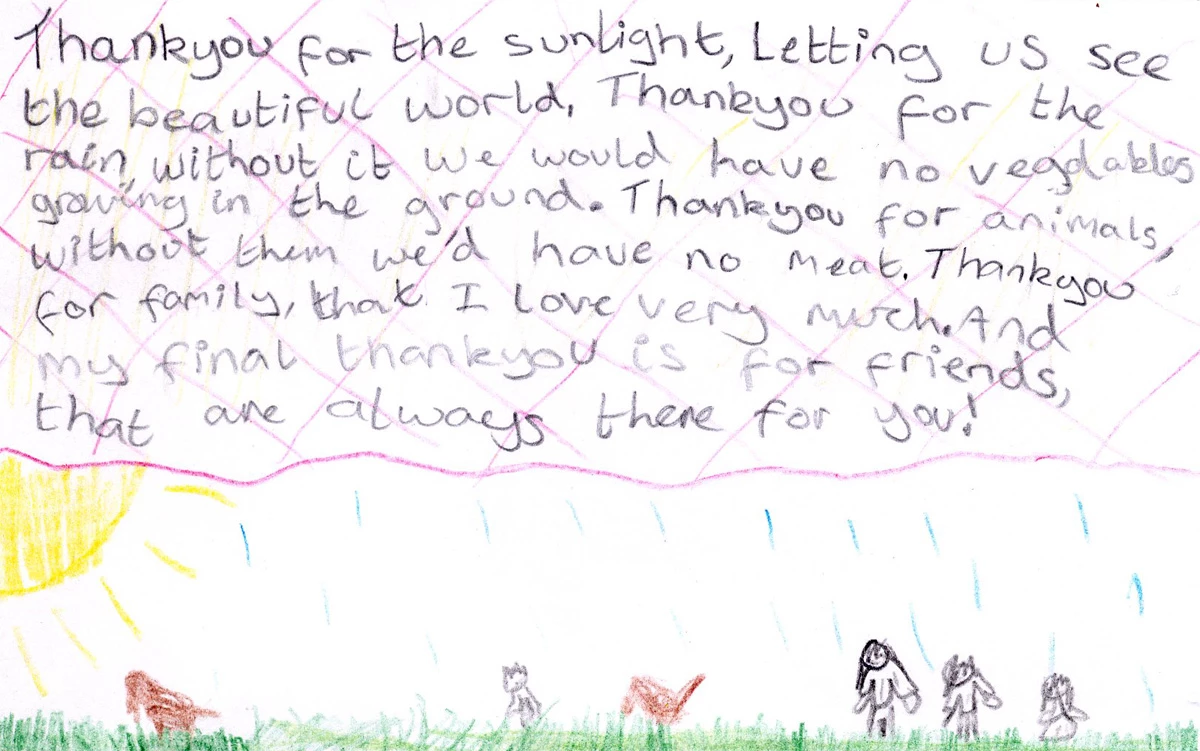 Thankyou for the sunlight, Letting us see
the beautiful world, Thankyou for the
rain, without it we would have no vegdables
growing in the ground. Thankyou for animals,
without them we'd have no meat. Thankyou
for family, that I love very much. And
my final thankyou is for friends,
that are always there for you!